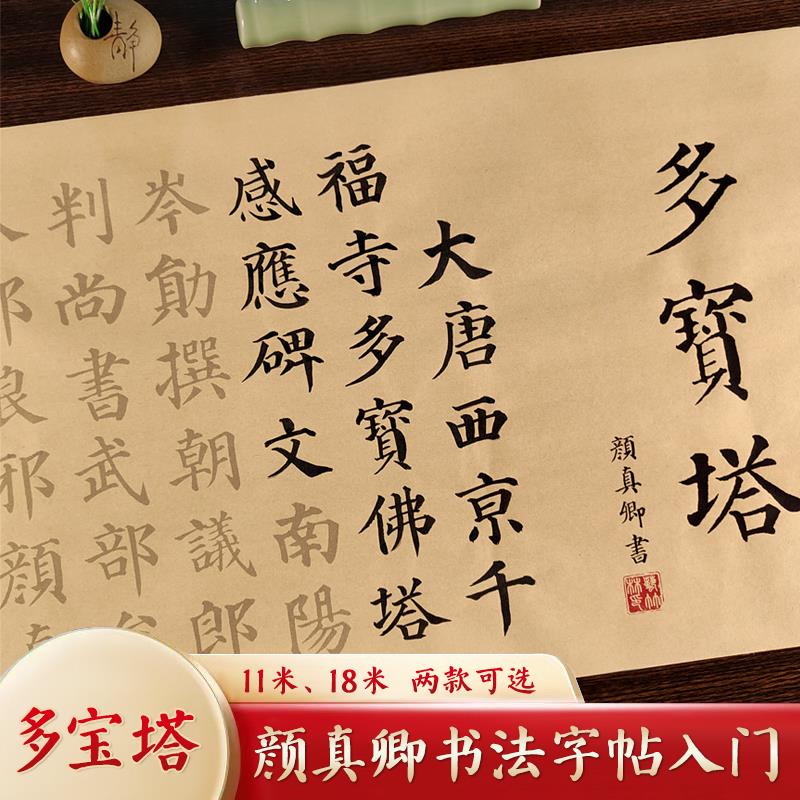 静
多寶塔
顏真卿書
大唐西亰千
福寺多寶佛塔
感應碑文
南陽
岑勛撰朝議郎
判尚書武部
邪顏
11米、18米 两款可选
多宝塔
颜真卿书法字帖入门